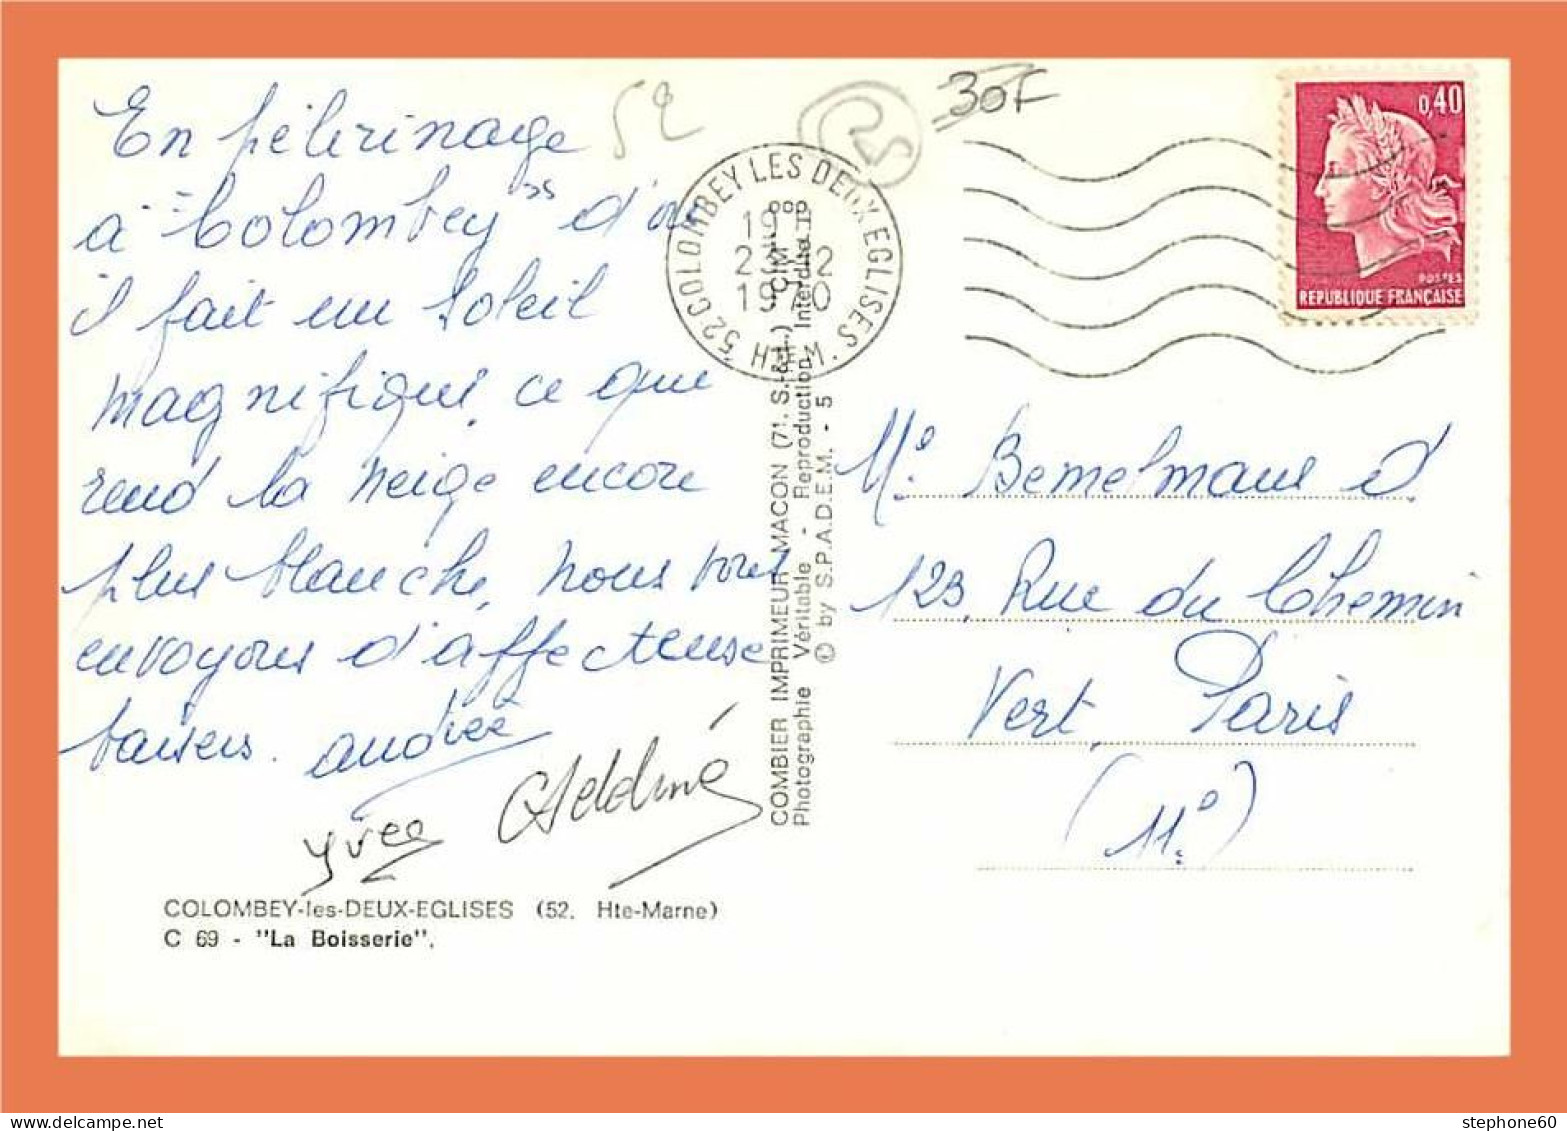 En pélerinage
à "Colombey" d'où
il fait un soleil
magnifique, ce que
rend la neige encore
plus blanche, nous vous
envoyons d'affectueuse
baisers. Andrée
Yves
COLOMBEY-les-DEUX-EGLISES (52. Hte-Marne)
C 69 - "La Boisserie".
52
30F
52 COLOMBEY LES DEUX EGLISES
HTE M.
1970
COMBIER IMPRIMEUR MACON (71. S.-&-L.) "CIM"
Photographie Véritable - Reproduction Interdite
© by S.P.A.D.E.M. - 5
0,40
POSTES
REPUBLIQUE FRANÇAISE
Me. Bemelmans
123, Rue du Chemin
Vert, Paris
(11e)
stephone60